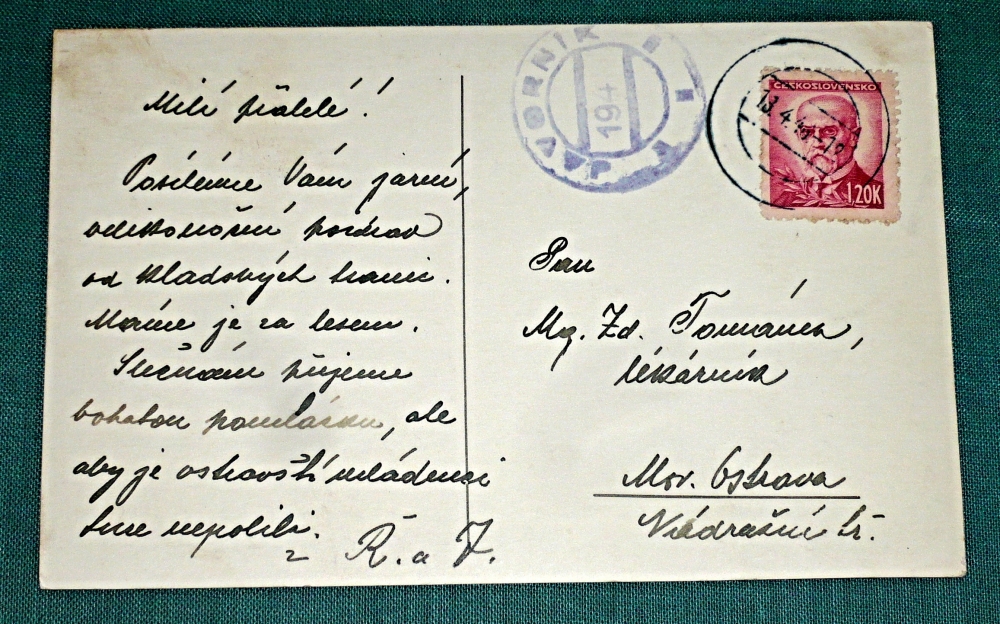 Milí přátelé!
Posíláme Vám jarní,
velikonoční pozdrav
od kladských hranic.
Máme je za lesem.
Slečnám přejeme
bohatou pomlázku, ale
aby je ostravští mládenci
tuze nepolili.
Ř. a J.
JAVORNÍK
194
1
ČESKOSLOVENSKO
1,20K
13.4.
Pan
Mg. Zd. Tománek,
lékárník
Mor. Ostrava
Nádražní tř.